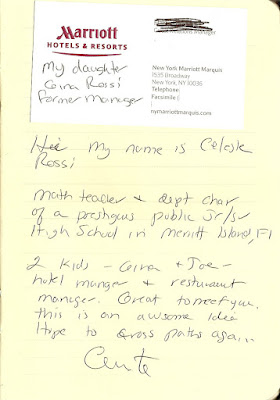 Marriott
HOTELS & RESORTS
My daughter
Gina Rossi
Former Manager
New York Marriott Marquis
1535 Broadway
New York, NY 10036
Telephone:
Facsimile (
nymarriottmarquis.com
My name is Celeste
Rossi
math teacher & dept chair
of a prestigous public Jr/Sr
High School in Merritt Island, Fl
2 kids - Gina & Joe -
hotel manger & restaurant
manager. Great to meet you.
this is an awsome idea
Hope to cross paths again...